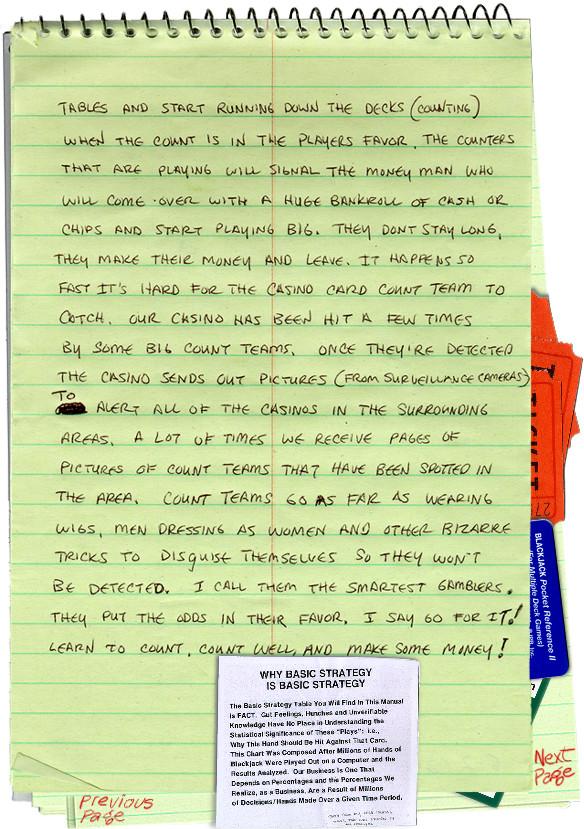 TABLES AND START RUNNING DOWN THE DECKS (COUNTING)
WHEN THE COUNT IS IN THE PLAYERS FAVOR, THE COUNTERS
THAT ARE PLAYING WILL SIGNAL THE MONEY MAN WHO
WILL COME OVER WITH A HUGE BANKROLL OF CASH OR
CHIPS AND START PLAYING BIG. THEY DONT STAY LONG,
THEY MAKE THEIR MONEY AND LEAVE. IT HAPPENS SO
FAST IT'S HARD FOR THE CASINO CARD COUNT TEAM TO
CATCH. OUR CASINO HAS BEEN HIT A FEW TIMES
BY SOME BIG COUNT TEAMS. ONCE THEY'RE DETECTED
THE CASINO SENDS OUT PICTURES (FROM SURVEILLANCE CAMERAS)
TO ALERT ALL OF THE CASINOS IN THE SURROUNDING
AREAS. A LOT OF TIMES WE RECEIVE PAGES OF
PICTURES OF COUNT TEAMS THAT HAVE BEEN SPOTTED IN
THE AREA. COUNT TEAMS GO AS FAR AS WEARING
WIGS, MEN DRESSING AS WOMEN AND OTHER BIZARRE
TRICKS TO DISGUISE THEMSELVES SO THEY WON'T
BE DETECTED. I CALL THEM THE SMARTEST GAMBLERS.
THEY PUT THE ODDS IN THEIR FAVOR. I SAY GO FOR IT!
LEARN TO COUNT, COUNT WELL, AND MAKE SOME MONEY!
TICKET
27
BLACKJACK Pocket Reference II
(For Multiple Deck Games)
WHY BASIC STRATEGY
IS BASIC STRATEGY
The Basic Strategy Table You Will Find In This Manual
is FACT. Gut Feelings, Hunches and Unverifiable
Knowledge Have No Place in Understanding the
Statistical Significance of These "Plays": i.e.,
Why This Hand Should Be Hit Against That Card.
This Chart Was Composed After Millions of Hands of
Blackjack Were Played Out on a Computer and the
Results Analyzed. Our Business Is One That
Depends on Percentages and the Percentages We
Realize, as a Business, Are a Result of Millions
of Decisions/Hands Made Over a Given Time Period.
Previous
Page
Next
Page